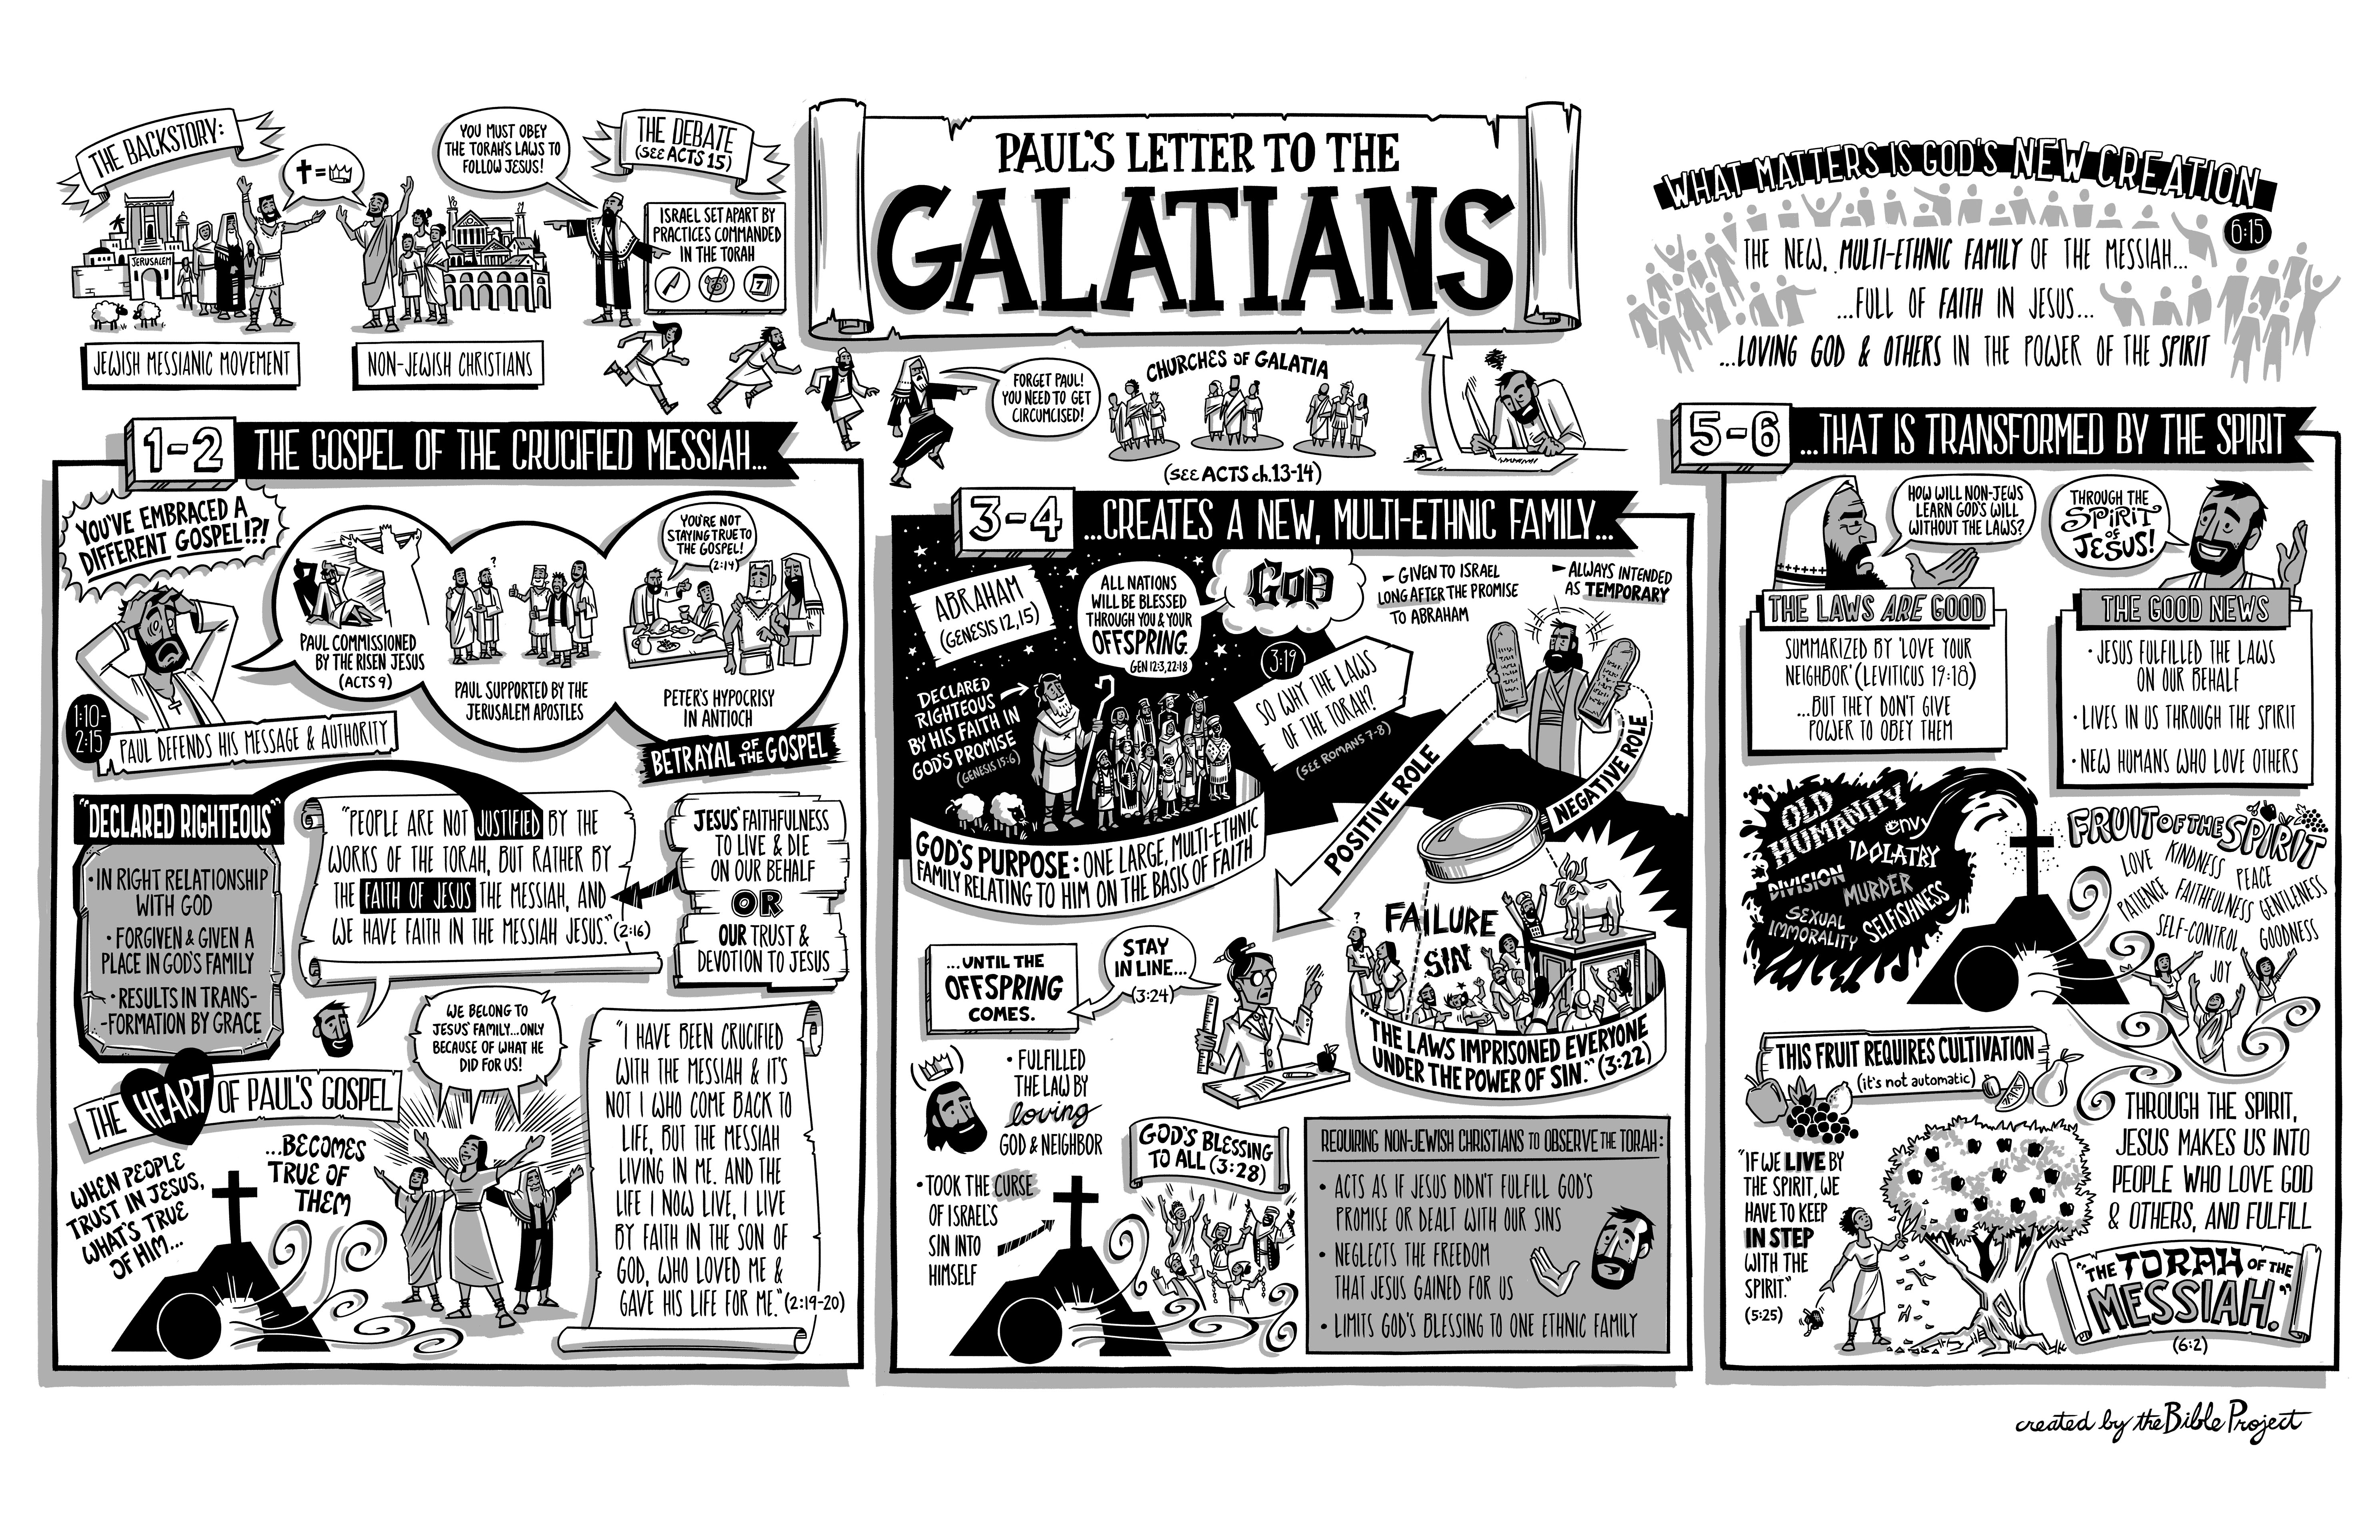 THE BACKSTORY:
✝=
JERUSALEM
JEWISH MESSIANIC MOVEMENT
NON-JEWISH CHRISTIANS
YOU MUST OBEY
THE TORAH'S LAWS TO
FOLLOW JESUS!
THE DEBATE
(SEE ACTS 15)
ISRAEL SET APART BY
PRACTICES COMMANDED
IN THE TORAH
7
PAUL'S LETTER TO THE
GALATIANS
FORGET PAUL!
YOU NEED TO GET
CIRCUMCISED!
CHURCHES OF GALATIA
(SEE ACTS ch.13-14)
WHAT MATTERS IS GOD'S NEW CREATION
6:15
THE NEW, MULTI-ETHNIC FAMILY OF THE MESSIAH...
...FULL OF FAITH IN JESUS...
...LOVING GOD & OTHERS IN THE POWER OF THE SPIRIT
1-2 THE GOSPEL OF THE CRUCIFIED MESSIAH...
YOU'VE EMBRACED A
DIFFERENT GOSPEL!?!
PAUL COMMISSIONED
BY THE RISEN JESUS
(ACTS 9)
?
PAUL SUPPORTED BY THE
JERUSALEM APOSTLES
YOU'RE NOT
STAYING TRUE TO
THE GOSPEL!
(2:14)
PETER'S HYPOCRISY
IN ANTIOCH
1:10-
2:15
PAUL DEFENDS HIS MESSAGE & AUTHORITY
BETRAYAL OF THE GOSPEL
"DECLARED RIGHTEOUS"
• IN RIGHT RELATIONSHIP
WITH GOD
• FORGIVEN & GIVEN A
PLACE IN GOD'S FAMILY
• RESULTS IN TRANS-
-FORMATION BY GRACE
"PEOPLE ARE NOT JUSTIFIED BY THE
WORKS OF THE TORAH, BUT RATHER BY
THE FAITH OF JESUS THE MESSIAH, AND
WE HAVE FAITH IN THE MESSIAH JESUS." (2:16)
JESUS' FAITHFULNESS
TO LIVE & DIE
ON OUR BEHALF
OR
OUR TRUST &
DEVOTION TO JESUS
THE HEART OF PAUL'S GOSPEL
WHEN PEOPLE
TRUST IN JESUS,
WHAT'S TRUE
OF HIM...
...BECOMES
TRUE OF
THEM
WE BELONG TO
JESUS' FAMILY...ONLY
BECAUSE OF WHAT HE
DID FOR US!
"I HAVE BEEN CRUCIFIED
WITH THE MESSIAH & IT'S
NOT I WHO COME BACK TO
LIFE, BUT THE MESSIAH
LIVING IN ME. AND THE
LIFE I NOW LIVE, I LIVE
BY FAITH IN THE SON OF
GOD, WHO LOVED ME &
GAVE HIS LIFE FOR ME." (2:19-20)
3-4 ...CREATES A NEW, MULTI-ETHNIC FAMILY...
ABRAHAM
(GENESIS 12,15)
ALL NATIONS
WILL BE BLESSED
THROUGH YOU & YOUR
OFFSPRING.
GEN 12:3, 22:18
GOD
DECLARED
RIGHTEOUS
BY HIS FAITH IN
GOD'S PROMISE
(GENESIS 15:6)
GOD'S PURPOSE: ONE LARGE, MULTI-ETHNIC
FAMILY RELATING TO HIM ON THE BASIS OF FAITH
GIVEN TO ISRAEL
LONG AFTER THE PROMISE
TO ABRAHAM
ALWAYS INTENDED
AS TEMPORARY
3:19
SO WHY THE LAWS
OF THE TORAH?
(SEE ROMANS 7-8)
POSITIVE ROLE
NEGATIVE ROLE
...UNTIL THE
OFFSPRING
COMES.
STAY
IN LINE...
(3:24)
?
FAILURE
SIN
"THE LAWS IMPRISONED EVERYONE
UNDER THE POWER OF SIN." (3:22)
• FULFILLED
THE LAW BY
loving
GOD & NEIGHBOR
• TOOK THE CURSE
OF ISRAEL'S
SIN INTO
HIMSELF
GOD'S BLESSING
TO ALL (3:28)
REQUIRING NON-JEWISH CHRISTIANS TO OBSERVE THE TORAH:
• ACTS AS IF JESUS DIDN'T FULFILL GOD'S
PROMISE OR DEALT WITH OUR SINS
• NEGLECTS THE FREEDOM
THAT JESUS GAINED FOR US
• LIMITS GOD'S BLESSING TO ONE ETHNIC FAMILY
5-6 ...THAT IS TRANSFORMED BY THE SPIRIT
HOW WILL NON-JEWS
LEARN GOD'S WILL
WITHOUT THE LAWS?
THROUGH THE
SPIRIT
OF
JESUS!
THE LAWS ARE GOOD
SUMMARIZED BY 'LOVE YOUR
NEIGHBOR' (LEVITICUS 19:18)
...BUT THEY DON'T GIVE
POWER TO OBEY THEM
THE GOOD NEWS
• JESUS FULFILLED THE LAWS
ON OUR BEHALF
• LIVES IN US THROUGH THE SPIRIT
• NEW HUMANS WHO LOVE OTHERS
OLD
HUMANITY
envy
IDOLATRY
DIVISION
MURDER
SEXUAL
IMMORALITY
SELFISHNESS
FRUIT OF THE SPIRIT
LOVE
KINDNESS
PEACE
PATIENCE
FAITHFULNESS
GENTLENESS
SELF-CONTROL
GOODNESS
JOY
THIS FRUIT REQUIRES CULTIVATION
(it's not automatic)
"IF WE LIVE BY
THE SPIRIT, WE
HAVE TO KEEP
IN STEP
WITH THE
SPIRIT."
(5:25)
THROUGH THE SPIRIT,
JESUS MAKES US INTO
PEOPLE WHO LOVE GOD
& OTHERS, AND FULFILL
"THE TORAH OF THE
MESSIAH."
(6:2)
created by the Bible Project